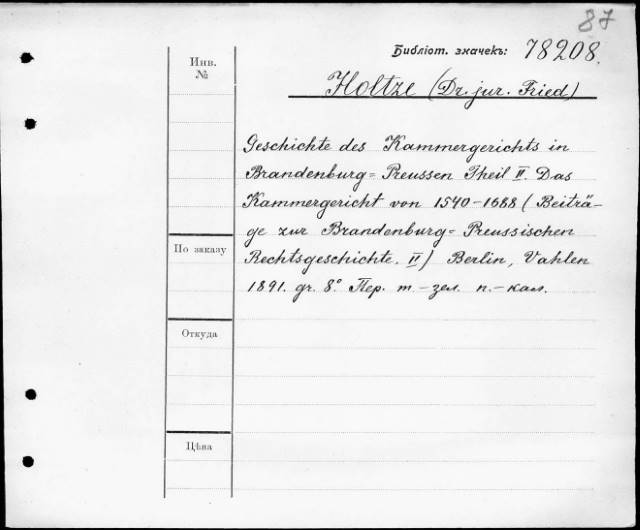 87
Библіот. значекъ: 78208.
Инв.
№
Holtze (Dr. jur. Fried)
Geschichte des Kammergerichts in
Brandenburg= Preussen Theil II. Das
Kammergericht von 1540-1688 (Beiträ-
ge zur Brandenburg= Preussischen
По заказу
Rechtsgeschichte. II) Berlin, Vahlen
1891. gr. 8° Пер. т.-зел. п.-кал.
Откуда
Цѣна